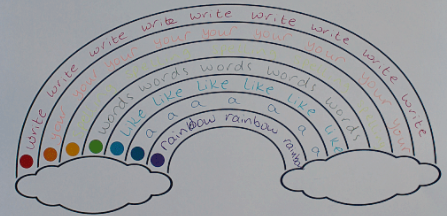 write write write write write write write write write write write
your your your your your your your your your your your
words words words words words
like like like like like like like like
a a a a a a a a
rainbow rainbow rainbow